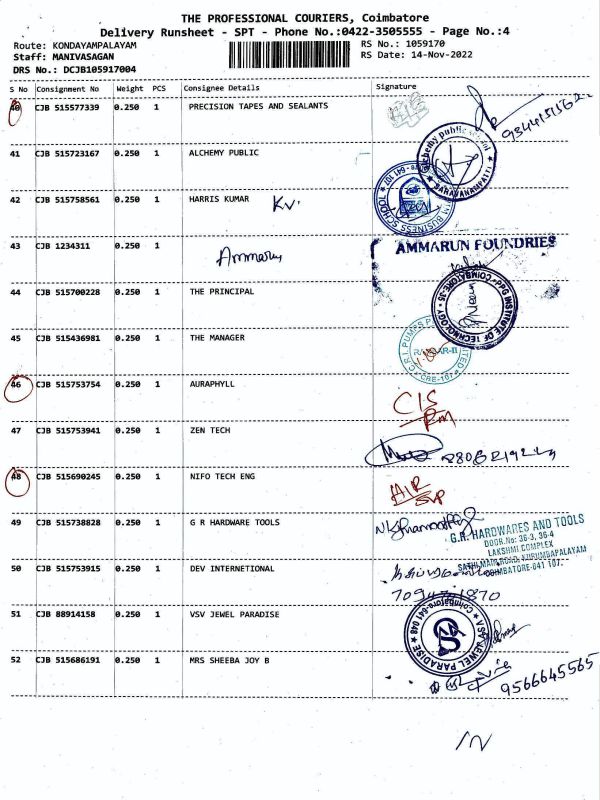 THE PROFESSIONAL COURIERS, Coimbatore
Delivery Runsheet - SPT - Phone No.:0422-3505555 - Page No.:4
Route: KONDAYAMPALAYAM RS No.: 1059170
Staff: MANIVASAGAN RS Date: 14-Nov-2022
DRS No.: DCJB105917004
S No Consignment No Weight PCS Consignee Details Signature
40 CJB 515577339 0.250 1 PRECISION TAPES AND SEALANTS
41 CJB 515723167 0.250 1 ALCHEMY PUBLIC alchemy public school SARAVANAMPATTI
42 CJB 515758561 0.250 1 HARRIS KUMAR BUSINESS SCHOOL
43 CJB 1234311 0.250 1 AMMARUN FOUNDRIES
44 CJB 515700228 0.250 1 THE PRINCIPAL PPG INSTITUTE OF TECHNOLOGY COIMBATORE-35
45 CJB 515436981 0.250 1 THE MANAGER C.R.I. PUMPS CBE-107
46 CJB 515753754 0.250 1 AURAPHYLL CIS
RM
47 CJB 515753941 0.250 1 ZEN TECH
48 CJB 515690245 0.250 1 NIFO TECH ENG
49 CJB 515738828 0.250 1 G R HARDWARE TOOLS
G.R. HARDWARES AND TOOLS
DOOR.No: 36-3, 36-4
LAKSHMI COMPLEX
SATHI MAIN ROAD, KURUMBAPALAYAM
COIMBATORE-641 107.
50 CJB 515753915 0.250 1 DEV INTERNETIONAL
51 CJB 88914158 0.250 1 VSV JEWEL PARADISE VSV JEWEL PARADISE Coimbatore-641 048
52 CJB 515686191 0.250 1 MRS SHEEBA JOY B
9566645565